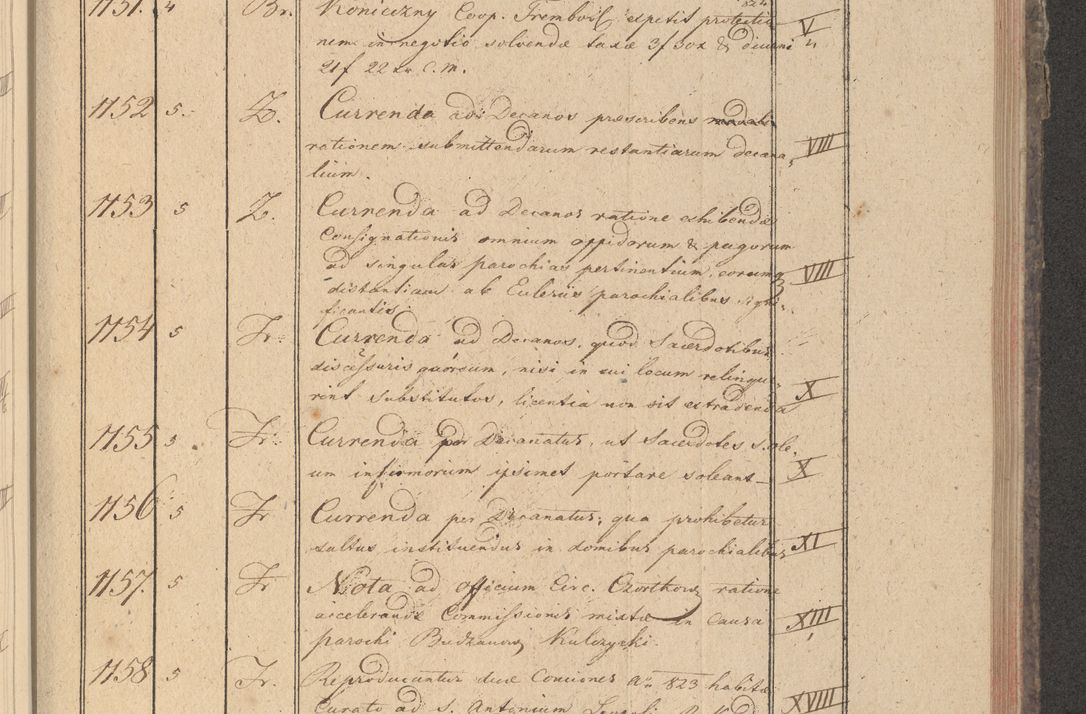 1151. 4 Br. Koniczny Coop. Trembovl. expetit protectio
nem in negotio solvendæ taxæ 3f 30x & diurni V
21f 22 xr C.M.
1152 5. Z. Currenda ad Decanos præscribens
rationem submittendarum restantiarum decana, VIII
lium.
1153 5 Z. Currenda ad Decanos ratione exhibendæ
Consignationis omnium oppidorum & pagorum
ad singulas parochias pertinentium, eorumq VIII
distantiam ab Ecclesiis parochialibus signi-
ficantis
1154 5 Fr. Currenda ad Decanos, quod Sacerdotibus
discessuris quorsum, nisi in sui locum relinque-
rint substitutos, licentia non sit extradenda X
1155 5 Fr. Currenda per Decanatus, ut Sacerdotes S. Ole-
um infirmorum ipsimet portare soleant X
1156 5 Fr Currenda per Decanatus, qua prohibetur
saltus instituendus in domibus parochialibus XI
1157. 5 Fr Nota ad officium Circ. Czortkow ratione
accelerandæ Commissionis mixtæ in Causa XIII
parochi Budzanow, Kulczycki.
1158 5 Fr. Reproducuntur duæ Conciones Ao 823 habitæ
Curato ad S. Antonium XVIII